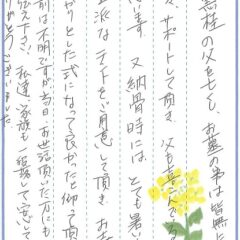 の父を亡くし、お墓の事は皆無
々、サポートして頂き 父も喜んでる
ます 又 納骨時には、とても暑い
立派なテントをご用意して頂き、お
かりとした式になって良かったと仰って頂
前は不明ですが当日お世話頂いた方にも
伝え下さい、私達家族
りがとうございました